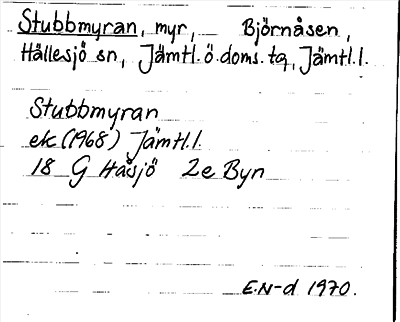 Stubbmyran, myr, Björnåsen,
Hällesjö sn, Jämtl. ö. doms. tg, Jämtl. l.
Stubbmyran
ek (1968) Jämtl. l.
18 G Håsjö 2e Byn
E.N-d 1970.